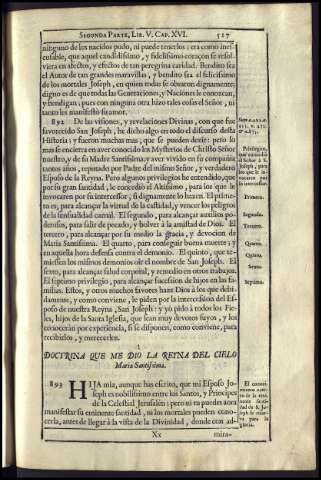 SEGUNDA PARTE, LIB. V. CAP. XVI. 517
ninguno de los nacidos pudo, ni puede tenerlos; era como inex-
cusable, que aquel candidissimo, y fidelissimo coraçon se resol-
viera en afectos, y efectos de tan peregrina caridad. Bendito sea
el Autor de tan grandes maravillas, y bendito sea el felicissimo
de los mortales Joseph, en quien todas se obraron dignamente,
digno es de que todas las Generaciones, y Naciones le conozcan,
y bendigan; pues con ninguna otra hizo tales cosas el Señor, ni
tanto les manifestò su amor.
892 De las visiones, y revelaciones Divinas, con que fue
favorecido San Joseph, he dicho algo en todo el discurso desta
Historia; y fueron muchas mas, que se pueden dezir: pero lo
mas se encierra en aver conocido los Mysterios de Christo Señor
nuestro, y de su Madre Santissima, y aver vivido en su compañia
tantos años, reputado por Padre del mismo Señor, y verdadero
Esposo de la Reyna. Pero algunos privilegios he entendido, que
por su gran santidad, le concediò el Altissimo, para los que le
invocaren por su intercessor, si dignamente lo hazen. El prime-
ro es, para alcançar la virtud de la castidad, y vencer los peligros
de la sensualidad carnal. El segundo, para alcançar auxilios po-
derosos, para salir de pecado, y bolver à la amistad de Dios. El
tercero, para alcançar por su medio la gracia, y devocion de
Maria Santissima. El quarto, para conseguir buena muerte; y
en aquella hora defensa contra el demonio. El quinto, que te-
miessen los mismos demonios oìr el nombre de San Joseph. El
sexto, para alcançar salud corporal, y remedio en otros trabajos.
El septimo privilegio, para alcançar sucession de hijos en las fa-
milias. Estos, y otros muchos favores haze Dios à los que debi-
damente, y como conviene, le piden por la intercession del Es-
poso de nuestra Reyna, San Joseph: y yo pido à todos los Fie-
les, hijos de la Santa Iglesia, que sean muy devotos suyos, y los
conoceràn por experiencia, si se disponen, como conviene, para
recibirlos, y merecerlos.
DOCTRINA QUE ME DIO LA REYNA DEL CIELO
Maria Santissima.
893 HIJA mia, aunque has escrito, que mi Esposo Jo-
seph es nobilissimo entre los Santos, y Principes
de la Celestial Jerusalèn: pero ni tu puedes aora
manifestar su eminente santidad, ni los mortales pueden cono-
cerla, antes de llegar à la vista de la Divinidad, donde con ad-
Xx mira-
Privilegios,
que concediò
el Señor à S.
Joseph, para
los que le in-
vocaren por
su intercessor.
Primero.
Segundo.
Tercero.
Quarto.
Quinto.
Sexto.
Septimo.